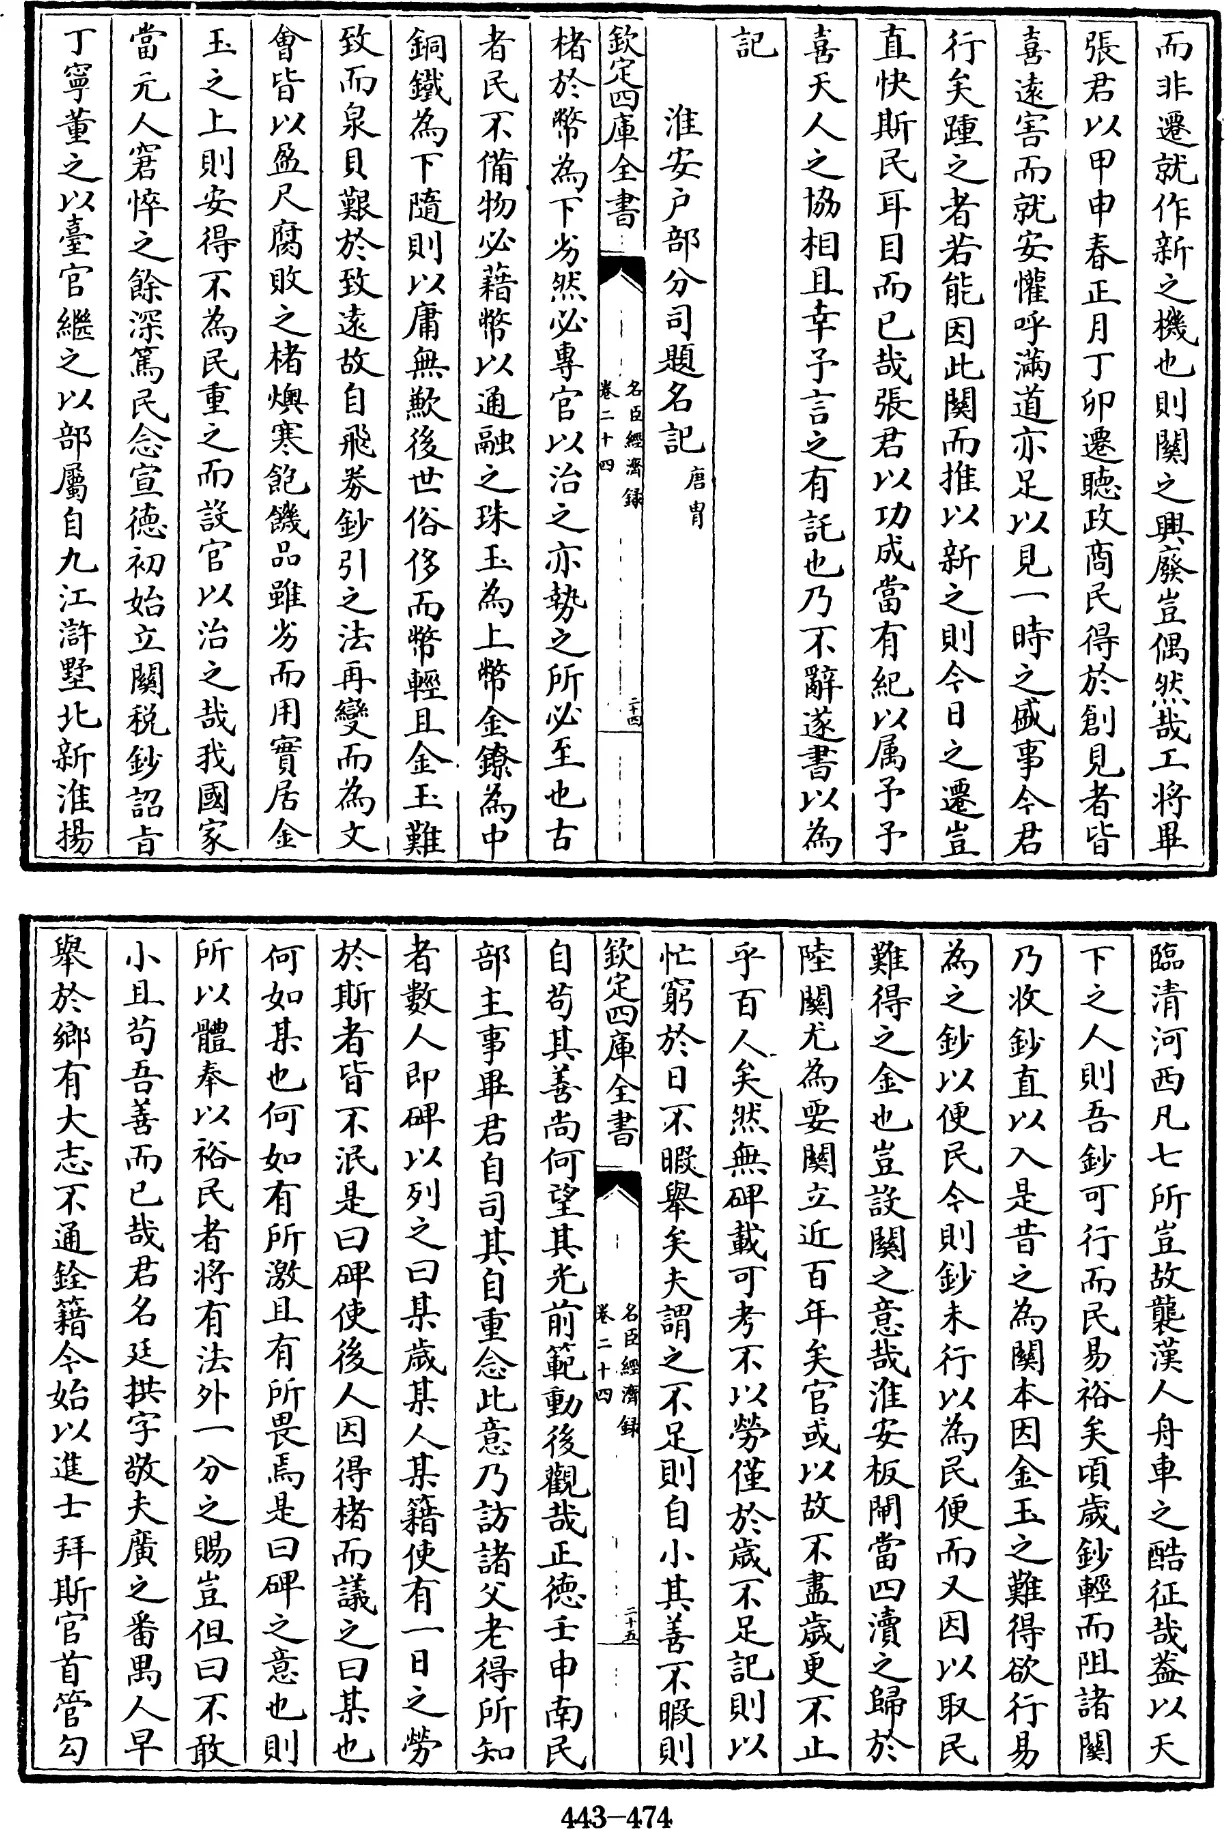 而非遷就作新之機也則關之興廢豈偶然哉工將畢
張君以甲申春正月丁卯遷聽政商民得於創見者皆
喜遠害而就安懽呼滿道亦足以見一時之盛事今君
行矣踵之者若能因此關而推以新之則今日之遷豈
直快斯民耳目而已哉張君以功成當有紀以属予予
喜天人之協相且幸予言之有託也乃不辭遂書以為
記
淮安户部分司題名記 唐胄
欽定四庫全書
名臣經濟録
卷二十四
二十四
楮於幣為下劣然必專官以治之亦勢之所必至也古
者民不備物必藉幣以通融之珠玉為上幣金鐐為中
銅鐵為下隨則以庸無歉後世俗侈而幣輕且金玉難
致而泉貝艱於致逺故自飛劵鈔引之法再變而為文
會皆以盈尺腐敗之楮燠寒飽饑品雖劣而用實居金
玉之上則安得不為民重之而設官以治之哉我國家
當元人窘悴之餘深篤民念宣德初始立關税鈔詔㫖
丁寧董之以臺官繼之以部屬自九江滸墅北新淮揚
臨清河西凡七所豈故襲漢人舟車之酷征哉葢以天
下之人則吾鈔可行而民易裕矣頃歲鈔輕而阻諸關
乃收鈔直以入是昔之為關本因金玉之難得欲行易
為之鈔以便民今則鈔未行以為民便而又因以取民
難得之金也豈設關之意哉淮安板閘當四瀆之歸於
陸關尤為要關立近百年矣官或以故不盡歲更不止
乎百人矣然無碑載可考不以勞僅於歲不足記則以
忙窮於日不暇舉矣夫謂之不足則自小其善不暇則
欽定四庫全書
名臣經濟録
卷二十四
二十五
自苟其善尚何望其光前範動後觀哉正德壬申南民
部主事畢君自司其自重念此意乃訪諸父老得所知
者數人即碑以列之曰某歲某人某籍使有一日之勞
於斯者皆不泯是曰碑使後人因得楮而議之曰某也
何如某也何如有所激且有所畏焉是曰碑之意也則
所以體奉以裕民者將有法外一分之賜豈但曰不敢
小且苟吾善而已哉君名廷拱字敬夫廣之番禺人早
舉於鄉有大志不通銓籍今始以進士拜斯官首管勾
443-474